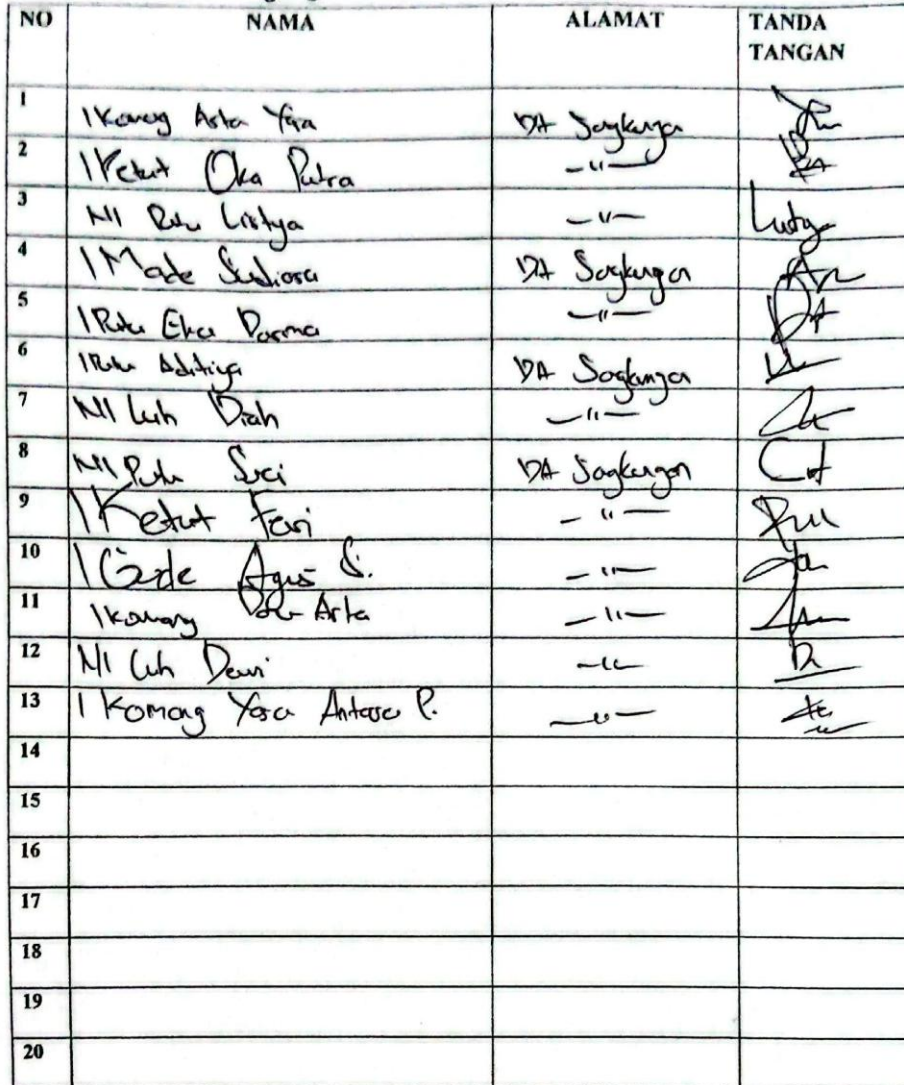 NO NAMA ALAMAT TANDA TANGAN
1 I Komang Arta Yasa DA Sangkungan
2 I Ketut Oka Putra —"—
3 NI Putu Listya —"—
4 I Made Sudiasa DA Sangkungan
5 I Putu Eka Darma —"—
6 I Putu Aditiya DA Sangkungan
7 NI Luh Diah —"—
8 NI Putu Suci DA Sangkungan
9 I Ketut Feri —"—
10 I Gede Agus S. —"—
11 I Komang Arta —"—
12 NI Luh Dewi —"—
13 I Komang Yasa Antara P. —"—
14
15
16
17
18
19
20